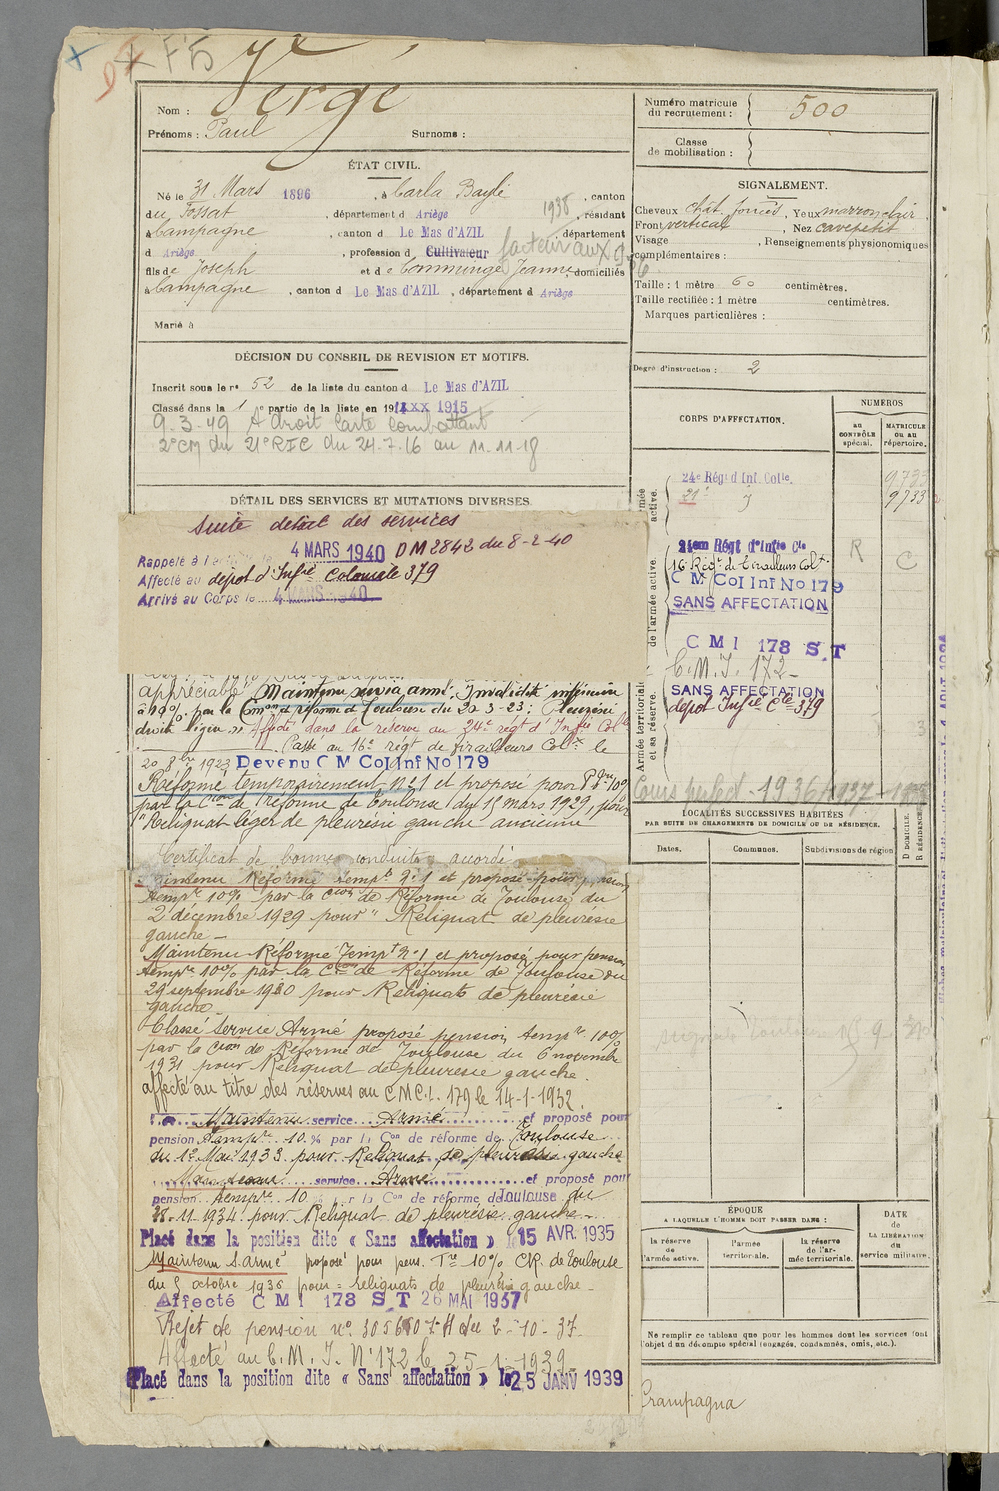 Vergé
Nom :
Prénoms : Paul Surnoms :
ÉTAT CIVIL.
Né le 31 Mars 1896, à Carla Bayle, canton
du Fossat, département d Ariège 1938, résidant
à Campagne, canton d Le Mas d'AZIL, département
d Ariège, profession d Cultivateur facteur aux
fils de Joseph et de Commenge Jeanne domiciliés
à Campagne, canton d Le Mas d'AZIL, département d Ariège
Marié à
DÉCISION DU CONSEIL DE REVISION ET MOTIFS.
Inscrit sous le n° 52 de la liste du canton d Le Mas d'AZIL
Classé dans la 1 e partie de la liste en 191 1915
9-3-49 A droit Carte Combattant
2e CM du 21e RIC du 24-7-16 au 11-11-18
DÉTAIL DES SERVICES ET MUTATIONS DIVERSES.
Suite detail des services
Rappelé à l' 4 MARS 1940 DM 2842 du 8-2-40
Affecté au dépot d'Infie Coloniale 379
Arrivé au Corps le 4 MARS 1940
appréciable Maintenu service armé. Invalidité inférieure
à 10% par la Comon d réforme d Toulouse du 20-3-23 ; Pleurésie
droite légère » Affecté dans la réserve au 24e régt d'Infie Colle
Passé au 16e régt de tirailleurs Colx le
20 8bre 1923 Devenu C M Col Inf No 179
Réformé temporairement n° 1 et proposé pour 10%
par la Cion de Réforme de Toulouse du 15 mars 1929, pour
"Reliquat léger de pleurésie gauche ancienne
Certificat de bonne conduite accordé
Maintenu Réformé Tempt n° 1 et proposé pour pension
tempre 10% par la Cion de Réforme de Toulouse du
2 décembre 1929 pour " Reliquat de pleurésie
gauche —
Maintenu Réformé Tempt n° 1 et proposé pour pension
tempre 10% par la Cion de Réforme de Toulouse du
29 septembre 1930 pour Reliquats de pleurésie
gauche
Classé Service Armé proposé pension tempre 10%
par la Cion de Réforme de Toulouse du 6 novembre
1931 pour Reliquat de pleurésie gauche.
affecté au titre des réserves au C.M.C.I. 179 le 14-1-1932.
Maintenu service Armé et proposé pour
pension tempre 10 % par la Con de réforme de Toulouse
du 1er Mai 1933 pour Reliquat de pleurésie gauche
service Armé et proposé pour
pension tempre 10 % par la Con de réforme de Toulouse du
-11-1934 pour Reliquat de pleurésie gauche -
Placé dans la position dite « Sans affectation » le 15 AVR. 1935
Maintenu S. armé proposé pour pens. Tre 10% CR. de Toulouse
du 5 octobre 1936 pour = reliquats de pleurésie gauche -
Affecté C M I 178 S T 26 MAI 1937
Rejet de pension n° du 2-10-37
Affecté au C. M. I. N° 172 le 25-1-1939
Placé dans la position dite « Sans affectation » le 25 JANV 1939
Numéro matricule du recrutement : 500
Classe de mobilisation :
SIGNALEMENT.
Cheveux chât. foncés, Yeux marron clair
Front vertical, Nez cave petit
Visage , Renseignements physionomiques
complémentaires :
Taille : 1 mètre 60 centimètres.
Taille rectifiée : 1 mètre centimètres.
Marques particulières :
Degré d'instruction : 2
CORPS D'AFFECTATION.
NUMÉROS
au CONTRÔLE spécial.
MATRICULE ou au répertoire.
24e Régt d'Inf. Colle. 9733
21e 9733
24em Régt d'Infie Cle R
16 Régt de Tirailleurs Colx C
C M Col Inf No 179
SANS AFFECTATION
C M I 178 S T
C. M. I. 172-
SANS AFFECTATION
dépot Infie Cle 379
Armée territoriale et sa réserve.
de l'armée active.
1936/1937
LOCALITÉS SUCCESSIVES HABITÉES
PAR SUITE DE CHANGEMENTS DE DOMICILE OU DE RÉSIDENCE.
Dates.
Communes.
Subdivisions de région
D DOMICILE.
R RÉSIDENCE.
ÉPOQUE
A LAQUELLE L'HOMME DOIT PASSER DANS :
la réserve de l'armée active.
l'armée territoriale.
la réserve de l'armée territoriale.
DATE de LA LIBÉRATION du service militaire.
Ne remplir ce tableau que pour les hommes dont les services font
l'objet d'un décompte spécial (engagés, condamnés, omis, etc.).
Crampagna